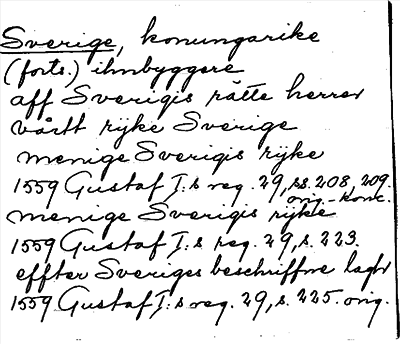 Sverige, konungarike
(forts.) ihnbyggere
aff Sverigis rätte herrer
vårtt rijke Sverige
menige Sverigis rijke
1559 Gustaf I:s reg. 29, ss. 208, 209.
orig.-konc.
menige Sverigis rijke
1559 Gustaf I:s reg. 29, s. 223.
effter Sveriges beschriffne lagh
1559 Gustaf I:s reg. 29, s. 225. orig.